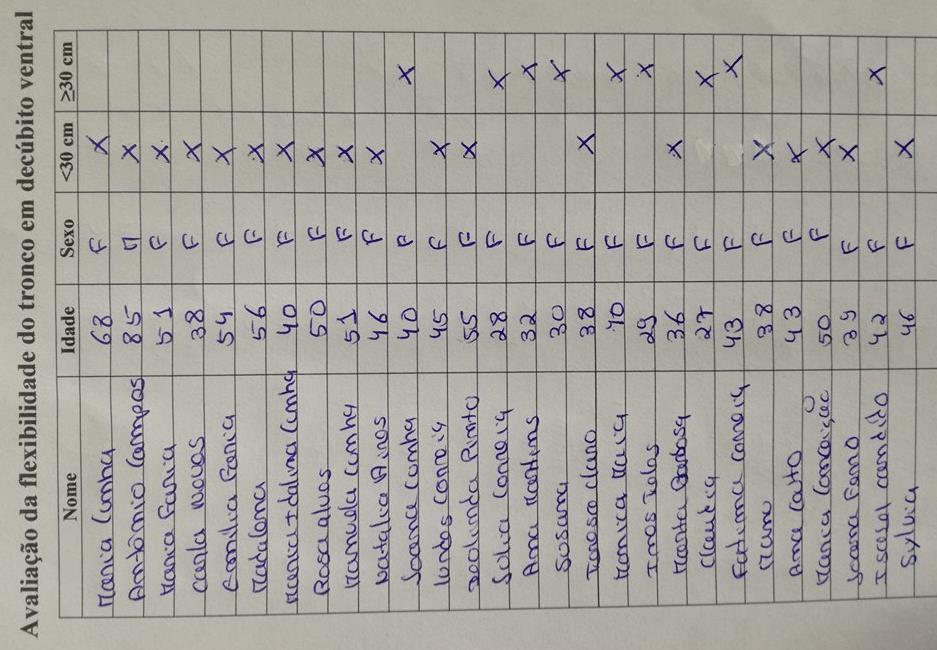 Avaliação da flexibilidade do tronco em decúbito ventral
Nome Idade Sexo <30 cm ≥30 cm
Maria Cunha 68 F X
António Campos 85 M X
Maria Faria 51 F X
Carla Novas 38 F X
Emilia Faria 54 F X
Madalena 56 F X
Maria Idalina Cunha 40 F X
Rosa alves 50 F X
Manuela Cunha 51 F X
Natalia Aires 46 F X
Joana Cunha 40 F X
Lurdes Correia 45 F X
Deolinda Pinto 55 F X
Sofia Correia 28 F X
Ana Martins 32 F X
Susana 30 F X
Teresa 38 F X
Monica Maia 70 F X
Ines Teles 29 F X
Marta Barbosa 36 F X
Claudia 27 F X
Fatima Correia 43 F X
38 F X
Ana Cato 43 F X
Maria Conceição 50 F X
Joana 39 F X
Isabel candido 42 F X
Sylvia 46 F X